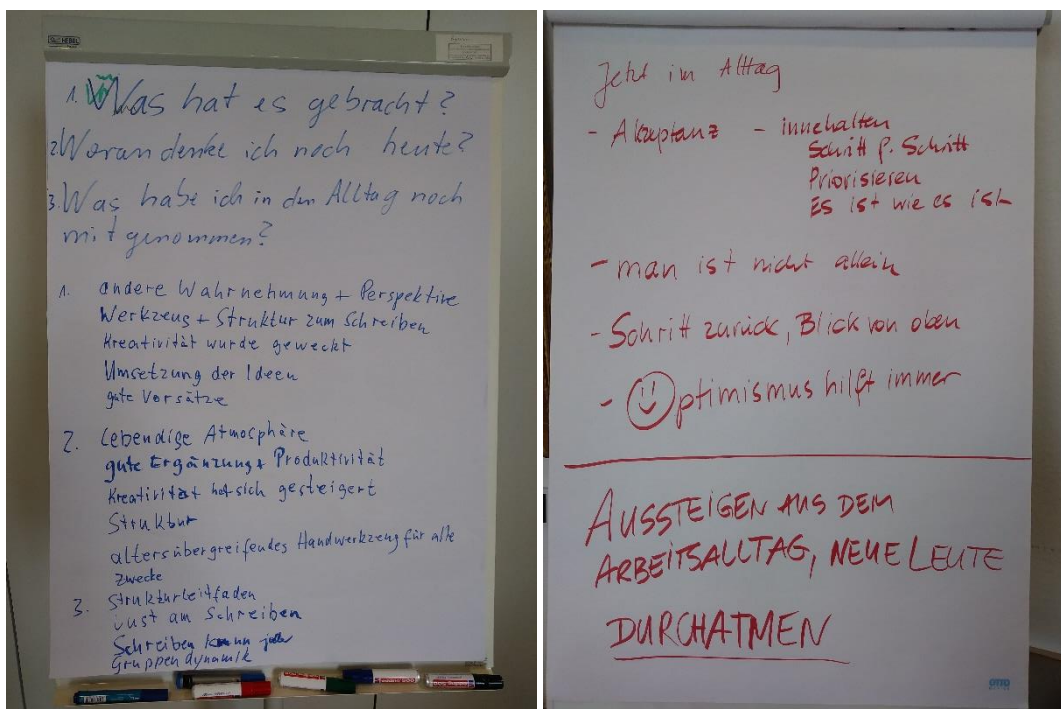 1. Was hat es gebracht?
2. Woran denke ich noch heute?
3. Was habe ich in den Alltag noch
mit genommen?
1. andere Wahrnehmung + Perspektive
Werkzeug + Struktur zum Schreiben
Kreativität wurde geweckt
Umsetzung der Ideen
gute Vorsätze
2. Lebendige Atmosphäre
gute Ergänzung + Produktivität
Kreativität hat sich gesteigert
Struktur
altersübergreifendes Handwerkzeug für alle
Zwecke
3. Strukturleitfaden
Lust am Schreiben
Schreiben kann jeder
Gruppendynamik
Jetzt im Alltag
- Akzeptanz - innehalten
Schritt f. Schritt
Priorisieren
Es ist wie es ist
- man ist nicht allein
- Schritt zurück, Blick von oben
- Optimismus hilft immer
AUSSTEIGEN AUS DEM
ARBEITSALLTAG, NEUE LEUTE
DURCHATMEN
OTTO